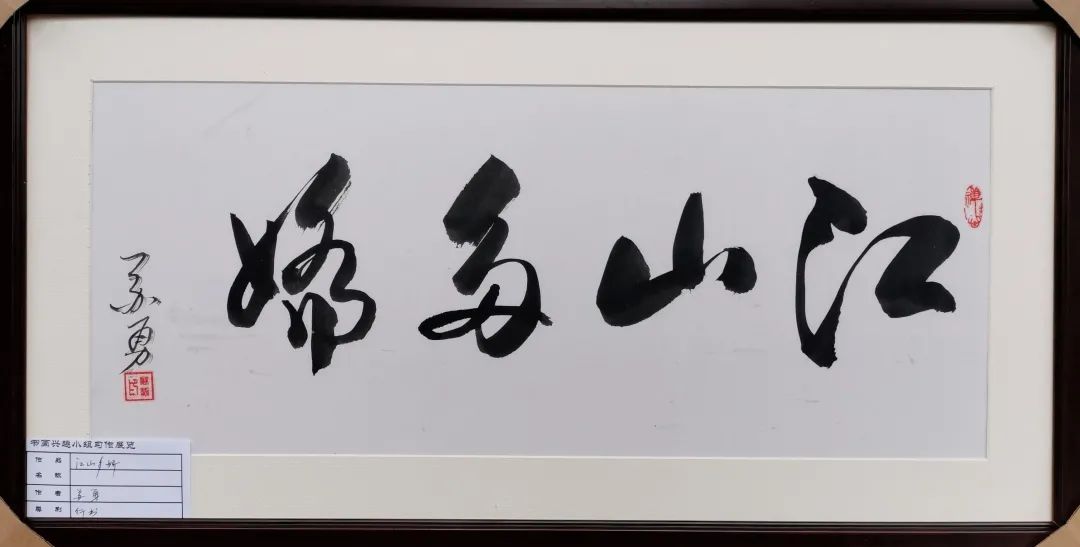 江山多娇
苏勇
书画兴趣小组习作展览
作品名称 江山多娇
作者 苏勇
类别 行书